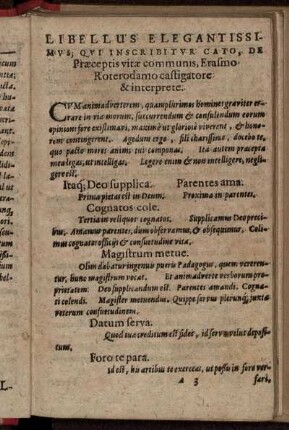 LIBELLUS ELEGANTISSI-
MVS, QVI INSCRIBITVR CATO, DE
Præceptis vitæ communis, Erasmo
Roterodamo castigatore
& interprete.
CVM animadverterem, quamplurimos homines graviter er-
rare in via morum, succurrendum & consulendum eorum
opinioni fore existimavi, maximè ut gloriosè viverent, & hono-
rem contingerent. Agedum ergo, fili charissime, docebo te,
quo pacto mores animi tui componas. Ita autem præcepta
mea legas, ut intelligas. Legere enim & non intelligere, negli-
gere est.
Itaq; Deo supplica. Parentes ama.
Prima pietas est in Deum; Proxima in parentes.
Cognatos cole.
Tertia in reliquos cognatos. Supplicamus Deo preci-
bus, Amamus parentes, dum observamus, & obsequimur, Coli-
mus cognatos officijs & consuetudine vitæ.
Magistrum metue.
Olim dabatur ingenuis pueris Pædagogus, quem vereren-
tur, hunc magistrum vocat. Et animadverte verborum pro-
prietatem. Deo supplicandum est. Parentes amandi. Cogna-
ti colendi. Magister metuendus. Quippe servus plerunq; juxta
veterum consuetudinem.
Datum serva.
Quod tuæ creditum est fidei, id serva velut deposi-
tum.
Foro te para.
Id est, his artibus te exerceas, ut possis in foro ver-
A 3 sari,